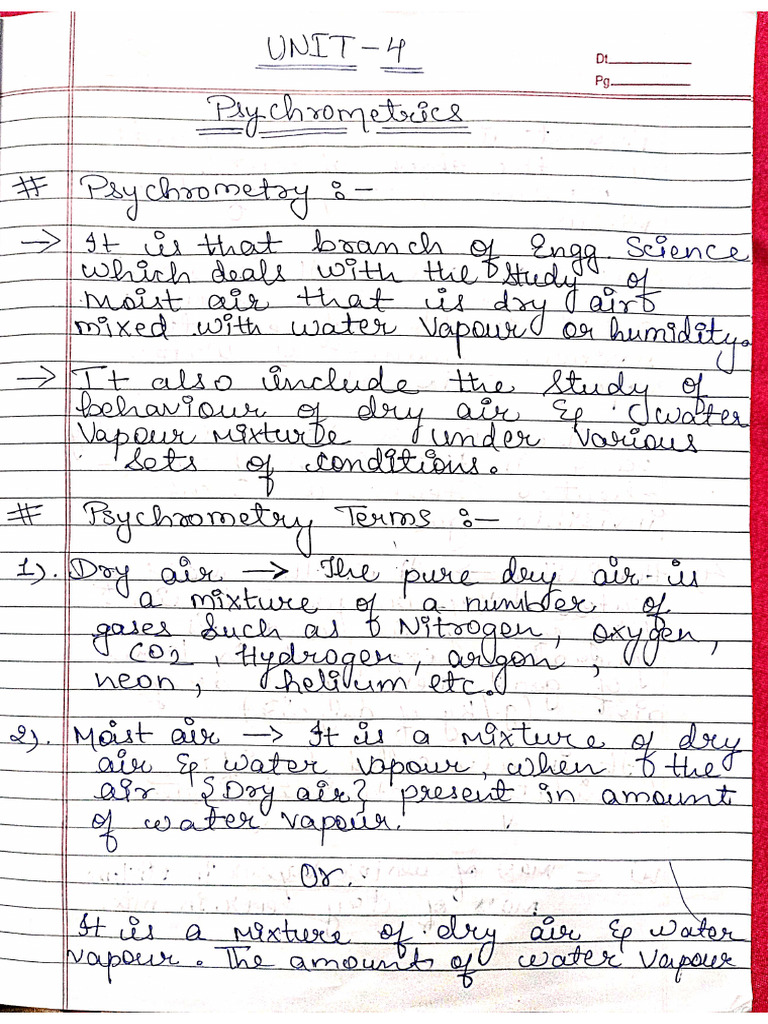 UNIT-4
Dt
Pg
Psychrometrics
# Psychrometry :-
→ It is that branch of Engg. Science
which deals with the study of
moist air that is dry air
mixed with water vapour or humidity.
→ It also include the study of
behaviour of dry air & water
vapour mixture under various
sets of conditions.
# Psychrometry Terms :-
1). Dry air → The pure dry air is
a mixture of a number of
gases such as Nitrogen, oxygen,
CO2, Hydrogen, argon,
neon, helium etc.
2). Moist air → It is a mixture of dry
air & water vapour, when the
air {Dry air} present in amount
of water vapour.
Or.
It is a mixture of dry air & water
vapour. The amount of water vapour